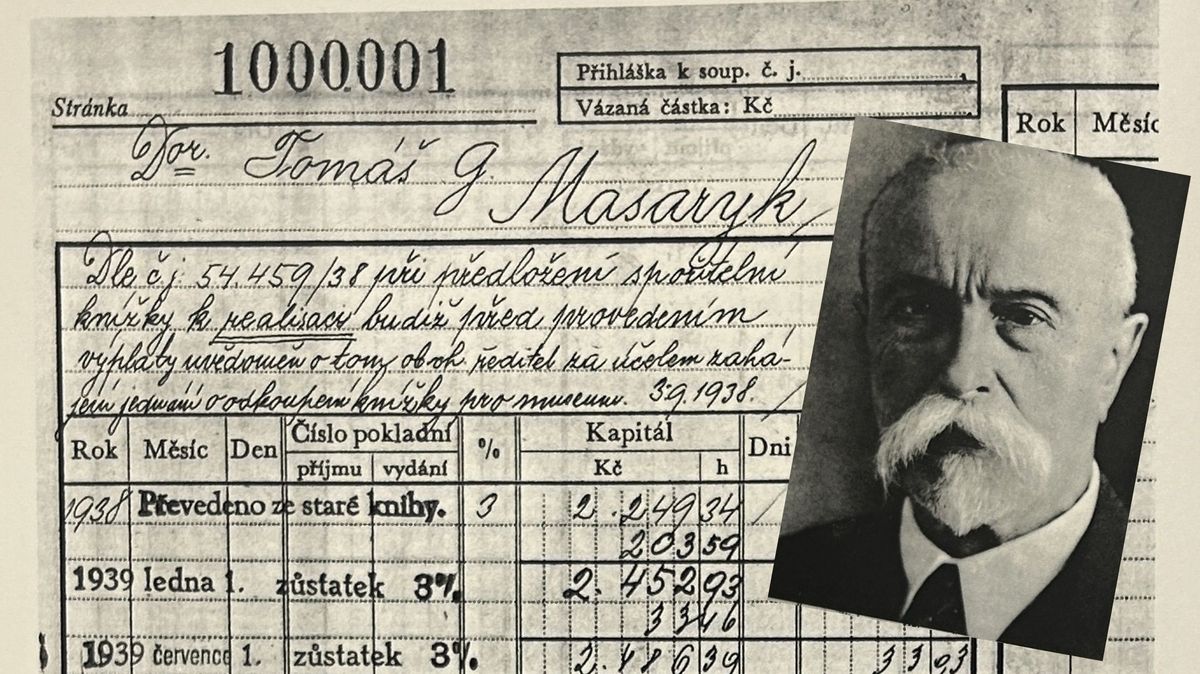 1000001
Stránka
Přihláška k soup. č. j.
Vázaná částka: Kč
Rok Měsíc
Dor. Tomáš G. Masaryk
Dle čj. 54.459/38 při předložení spořitelní
knížky k realisaci budiž před provedením
výplaty uvědoměn o tom obch. ředitel za účelem zahá-
jení jednání o odkoupení knížky pro museum. 3/9 1938.
Rok Měsíc Den Číslo pokladní příjmu vydání % Kapitál Kč h Dni
1938 Převedeno ze staré knihy. 3 2.249 34
203 59
1939 ledna 1. zůstatek 3% 2.452 93
33 46
1939 července 1. zůstatek 3% 2.486 39 33 93